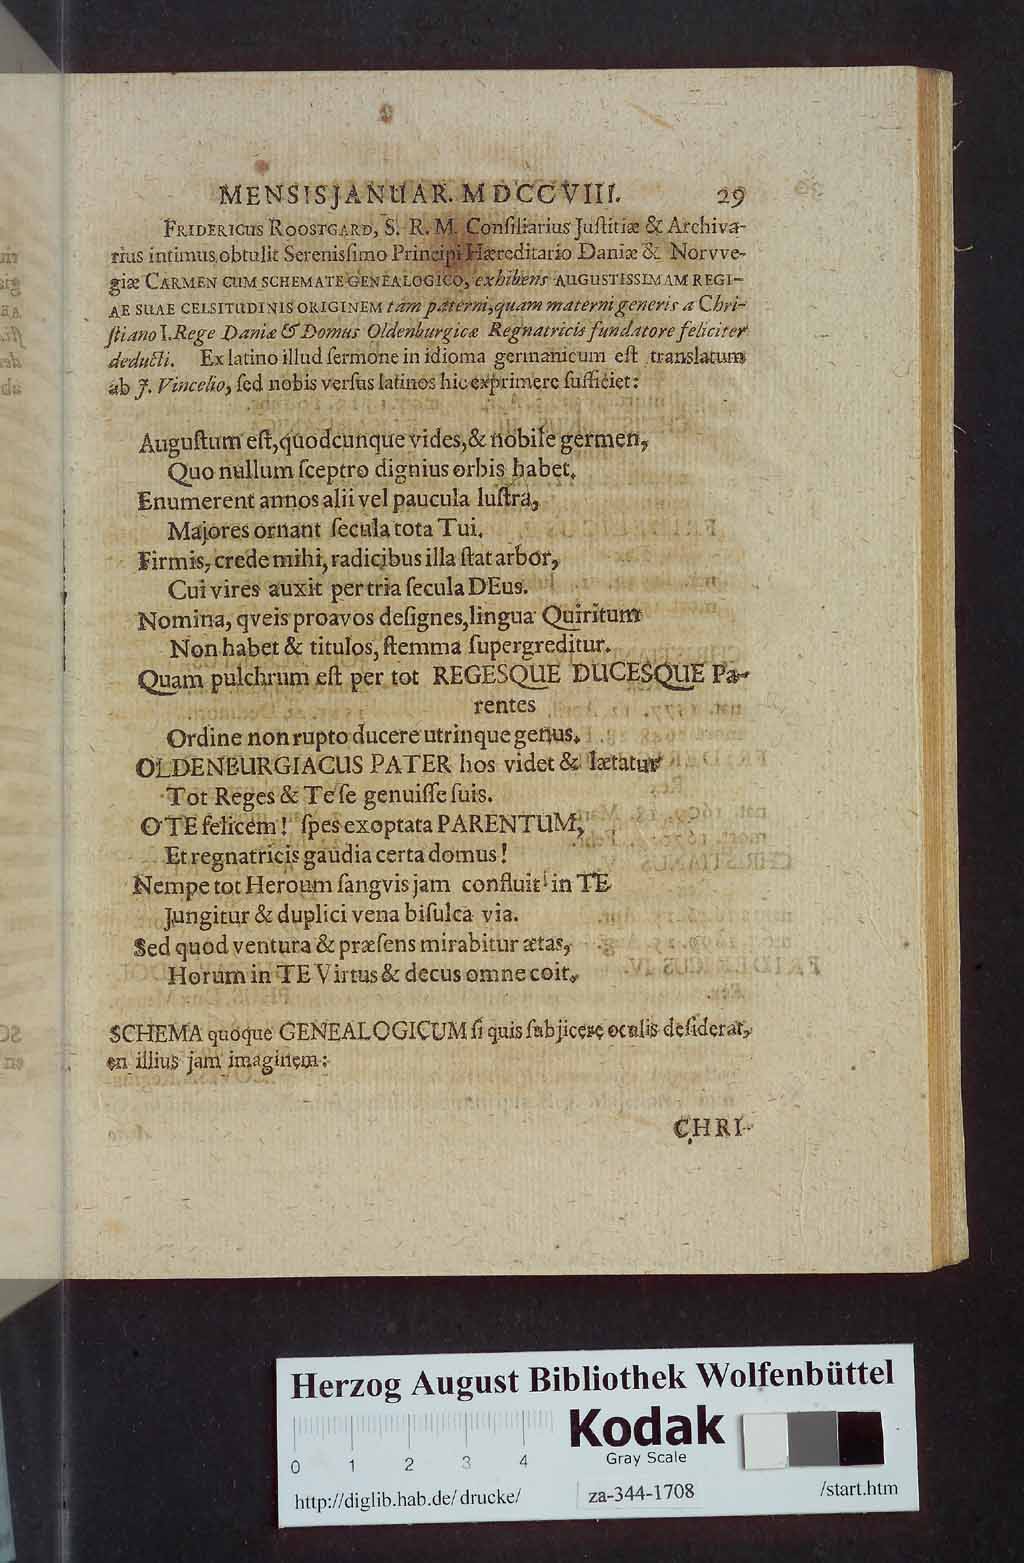 MENSIS JANUAR. MDCCVIII. 29
FRIDERICUS ROOSTGARD, S. R. M. Conſiliarius Juſtitiæ & Archiva-
rius intimus, obtulit Sereniſſimo Principi Hæreditario Daniæ & Norvve-
giæ CARMEN CUM SCHEMATE GENEALOGICO, exhibens AUGUSTISSIMAM REGI-
AE SUAE CELSITUDINIS ORIGINEM tam paterni, quam materni generis a Chri-
ſtiano I. Rege Daniæ & Domus Oldenburgicæ Regnatricis fundatore feliciter
deducti. Ex latino illud ſermone in idioma germanicum eſt translatum
ab J. Vincelio, ſed nobis verſus latinos hic exprimere ſufficiet:
Auguſtum eſt, quodcunque vides, & nobile germen,
Quo nullum ſceptro dignius orbis habet.
Enumerent annos alii vel paucula luſtra,
Majores ornant ſecula tota Tui.
Firmis, crede mihi, radicibus illa ſtat arbor,
Cui vires auxit per tria ſecula DEus.
Nomina, qveis proavos deſignes, lingua Quiritum
Non habet & titulos, ſtemma ſupergreditur.
Quam pulchrum eſt per tot REGESQUE DUCESQUE Pa-
rentes
Ordine non rupto ducere utrinque genus.
OLDENBURGIACUS PATER hos videt & lætatur
Tot Reges & Te ſe genuiſſe ſuis.
O TE felicem! ſpes exoptata PARENTUM,
Et regnatricis gaudia certa domus!
Nempe tot Heroum ſangvis jam confluit in TE
Jungitur & duplici vena biſulca via.
Sed quod ventura & præſens mirabitur ætas,
Horum in TE Virtus & decus omne coit.
SCHEMA quoque GENEALOGICUM ſi quis ſubjicere oculis deſiderat,
en illius jam imaginem:
CHRI-
Herzog August Bibliothek Wolfenbüttel
Kodak
Gray Scale
0 1 2 3 4
http://diglib.hab.de/drucke/ za-344-1708 /start.htm